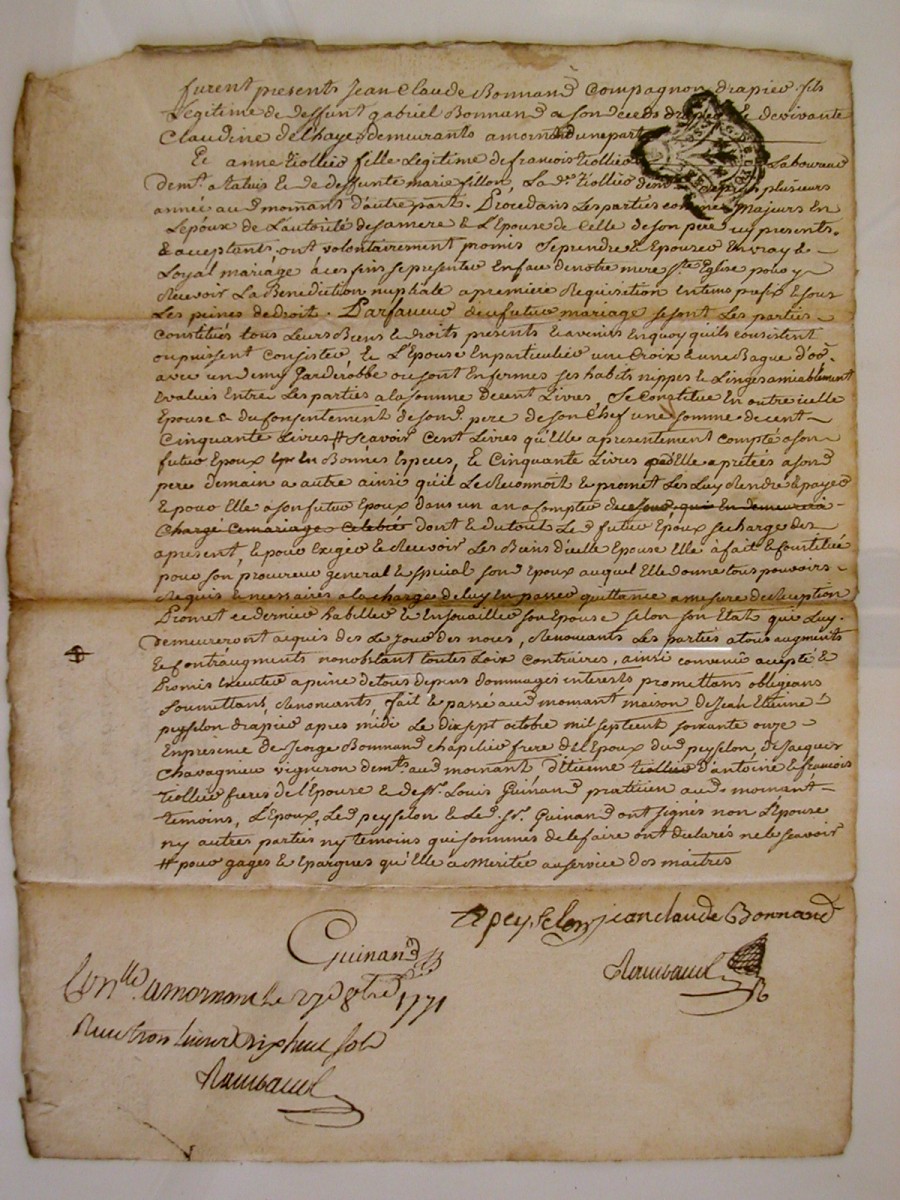 furent presents Jean Claude Bonnand Compagnon drapier fils
Legitime de deffunt gabriel Bonnand a son deceds drapier & de vivante
Claudine delhaye, demeurants a moinant d'une part
Et anne Tiollier fille Legitime de francois Tiollier Laboureur
dem.t a taluis & de deffunte marie fillon, La d.e Tiollier plusieurs
année aud moinant d'autre part. Procedans Les parties comme majeurs En
L'epoux de L'autorité de sa mere & L'Epouse de Celle de son pere icy presents.
& acceptants, ont volontairement promis Se prendre & Epouser En vray &
Loyal mariage à ces fins se presenter En face de notre mere S.te Eglise pour y
Recevoir La Benediction nuptiale a premiere Requisition En tems prefix & sous
Les peines de droit. Parfaveur du futur mariage se sont Les parties
Constitués tous Leurs Biens & droits presents & avenirs En quoy qu'ils consistent
ou puissent Consister, & L'Epouse En particulier une Croix & une Bague d'or
avec un demy Garderobbe ou sont Enfermes ses habits nippes & Linges amiablement
Evalues Entre Les parties a la somme de cent Livres, Se Constitue En outre icelle
Epouse & du Consentement de son d. pere de son Chef une somme de cent
Cinquante Livres # scavoir Cent Livres qu'Elle a presentement compté a son
futur Epoux En Bonnes Especes, & Cinquante Livres qu'Elle a pretées a son d
pere demain a autre ainsi qu'il Le Reconnoit & promet Les Luy Rendre & payer
& pour Elle a son futur Epoux dans un an a compter de ce Jour, qui En demeurera
Chargé Ce mariage Celebré dont & du tout Le d futur Epoux se charge des
apresent, & pour Exiger & Recevoir Les Biens d'icelle Epouse Elle à fait & Constitué
pour son procureur general & special son d Epoux auquel Elle donne tous pouvoirs
Requis & necessaires a la charge de luy En passer quittance a mesure de Reception
Promet ce dernier habiller & Enjouailler son Epouse selon son Etat qui Luy
demeureront acquis des Le Jour des noces, Renoncants Les parties a tous augments
& Contraugments nonobstant toutes Loix Contraires, ainsi convenu accepté &
Promis Executer a peine de tous depens dommages interests promettans obligeans
Soumettans, Renoncants, fait & passé aud moinant maison de Jean Etienne
peysselon drapier apres midi Le dix sept octobre mil sept cent soixante onze
En presence de George Bonnand chapelier frere de l'Epoux du d peysselon, de Jacques
Chavagnieu vigneron dem.t aud moinant d'Etienne Tiollier d'antoine & francois
Tiollier freres de l'Epouse & de S.r Louis Guinand praticien aud. moinant
temoins, L'Epoux, Le d peysselon & Le d. S.r Guinand ont signés non L'Epouse
ny autres parties ny temoins qui sommés de le faire ont declarés ne le Scavoir
# pour gages & Epargnes qu'Elle a Meritée au service des maitres
peysselon jean claude Bonnand
Guinand
Raimbaud
Con.llé a mornant le 27 8bre 1771
Recu trois livres dix huit sols
Raimbaud